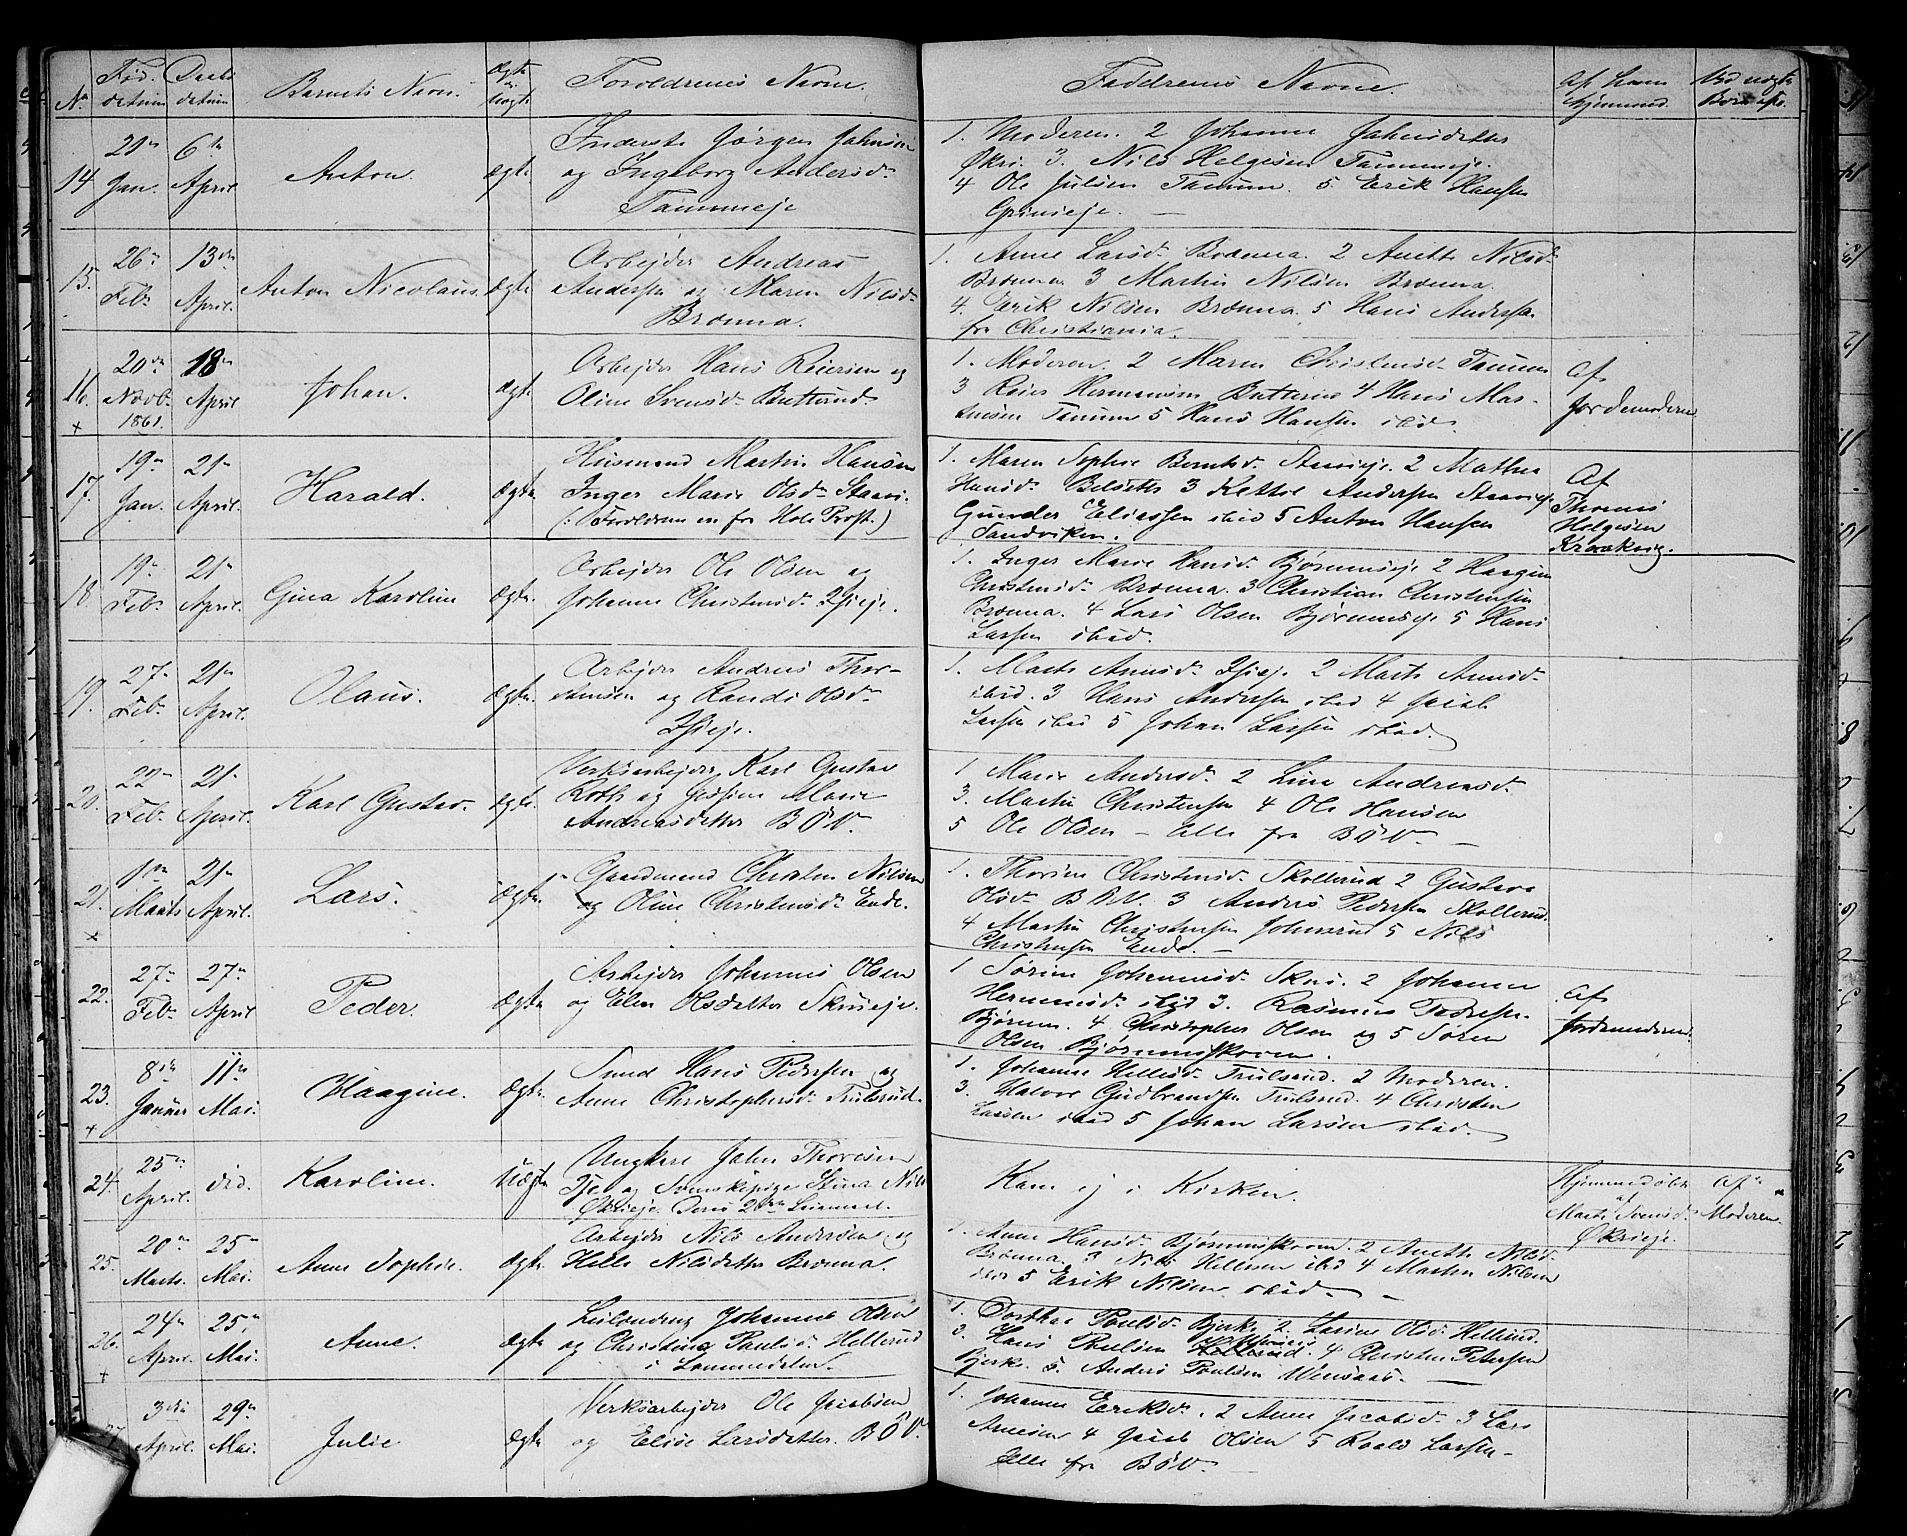 No Fød. datum Daabs datum Barnets Navn. Ægte og Uægte Foreldrenes Navne. Faddrenes Navne. Af hvem hjemmed. Ved uægte Børn
14. Jan. 6te April Anton. ægte
Inderste Jørgen Johnsen
og Ingeborg Andersd.
Tanumeje
1. Moderen. 2 Johanne Johnsdatter
Økri. 3. Nils Helgesen Tanumeje.
4 Ole Julsen Tanum. 5 Erik Hansen
Grinieje.
15. 26de Feb. 13de April. Anton Nicolaus. Ægte
Arbejder Andreas
Andersen og Maren Nilsd.
Brønna.
1. Anne Larsd. Brønna. 2 Anette Nilsd.
Brønna 3 Martin Nilsen Brønna.
4. Erik Nilsen Brønna. 5 Hans Andersen
fra Christiania.
16. 20de Novb. 1861. 18de April Johan. ægte.
Arbejder Hans Reiersen og
Oline Svensd. Butterud.
1. Moderen. 2 Maren Christensd. Tanum
3 Reier Hermansen 4 Hans
Tanum 5 Hans Hansen ibid.
Af Jordemoderen
17. 19de Jan. 21de April. Harald. Ægte.
Husmand Martin Hansen
Inger Marie Olsd. Staavi.
(: Foreldrene er fra Hole Prest.)
1. Maren Sophie Berntsd. Staavieje. 2 Mathea
Hansd. Belsette 3 Kettil Andersen Staavieje
Gunder Eliassen ibid 5 Anton Hansen
Sandviken.
Af Thomas Helgesen
18. 19de Feb. 21de April. Gina Karoline Ægte.
Arbejder Ole Olsen og
Johanne Christensd.
1. Inger Marie Hansd. Bjørumseje 2 Haagine
Christensd. Brønna. 3 Christian Christensen
Brønna. 4 Lars Olsen Bjørumseje 5 Hans
Larsen ibid.
19. 27. Feb. 21de April. Olaus. Ægte.
Arbejder Andreas Thor-
stensen og Randi Olsd.
1. Marte Arnesd. 2 Marte Arnesd.
ibid. 3 Hans Andersen ibid 4 Jacob
Larsen ibid 5 Johan Larsen ibid.
20. 22de Feb. 21. April. Karl Gustav. ægte.
Verksarbejder Karl Gustav
Roth og Josefine Marie
Andreasdatter BØV.
1 Marie Andersd. 2 Line Andreasd.
3. Martin Christensen 4 Ole Hansen
5 Ole Olsen – Alle fra BØV.
21. 1ste Marts 21de April. Lars. Ægte.
Gaardmand Christen Nilsen
og Oline Christensd. Ende.
1. Thorine Christensd. Skollerud 2 Gustava
Olsd. BØV. 3 Anders Pedersen Skollerud.
4 Martin Christensen Johnsrud 5 Nils
Christensen Ende.
22. 27de Feb. 27de April Peder. Ægte
Arbejder Johannes Olsen
og Elen Olsdatter Skuieje.
1 Sørine Johannesd. Skui. 2 Johanne
Hermansd. ibid 3. Rasmus Pedersen
Bjørum. 4 Christopher Olsen og 5 Søren
Olsen Bjørumsskoven.
Af Jordemoderen.
23. 8de Januar 11te Mai. Haagine. Ægte.
Smed Hans Pedersen og
Anne Christophersd. Trulsrud.
1. Johanne Hellesd. Trulsrud. 2 Moderen.
3. Halvor Gudbrandsen Trulsrud. 4 Christen
Larsen ibid 5 Johan Larsen ibid.
24. 25de April. did. Karoline. Uægte
Ungkarl John Thoresen
og Svenskepige Stina Nils
Økrieje. Deres 2det Leiermaal.
Kom ej i Kirken.
Hjemmedøbt af Marte Svensd. Økrieje.
Af Moderen.
25. 20de Marts. 25de Mai. Anne Sophie. Ægte.
Arbejder Nils Andersen og
Helle Nilsdatter Brønna.
1. Anne Hansd. Bjørumsskoven. 2 Anette Nilsd.
Brønna. 3 Nils Hellesen ibid 4 Martin Nilsen
ibid 5 Erik Nilsen ibid.
26. 24de April. 25de Mai. Anne. Ægte
Leilending Johannes Olsen
og Christine Paulsd. Hellerud
i Lommedalen.
1. Dorthea Paulsd. Bjerke 2. Larine Olsd. Hellerud.
3. Hans Paulsen 4 Christen Petersen
Bjerke. 5. Anders Paulsen
3die April. 29de Mai. Julie Ægte
Verksarbejder Ole Jacobsen
og Elise Larsdatter. BØV.
1. Johanne Eriksd. 2 Anne Jacobsd. 3 Lars
Arnesen 4 Jacob Olsen 5 Roald Larsen –
Alle fra BØV.